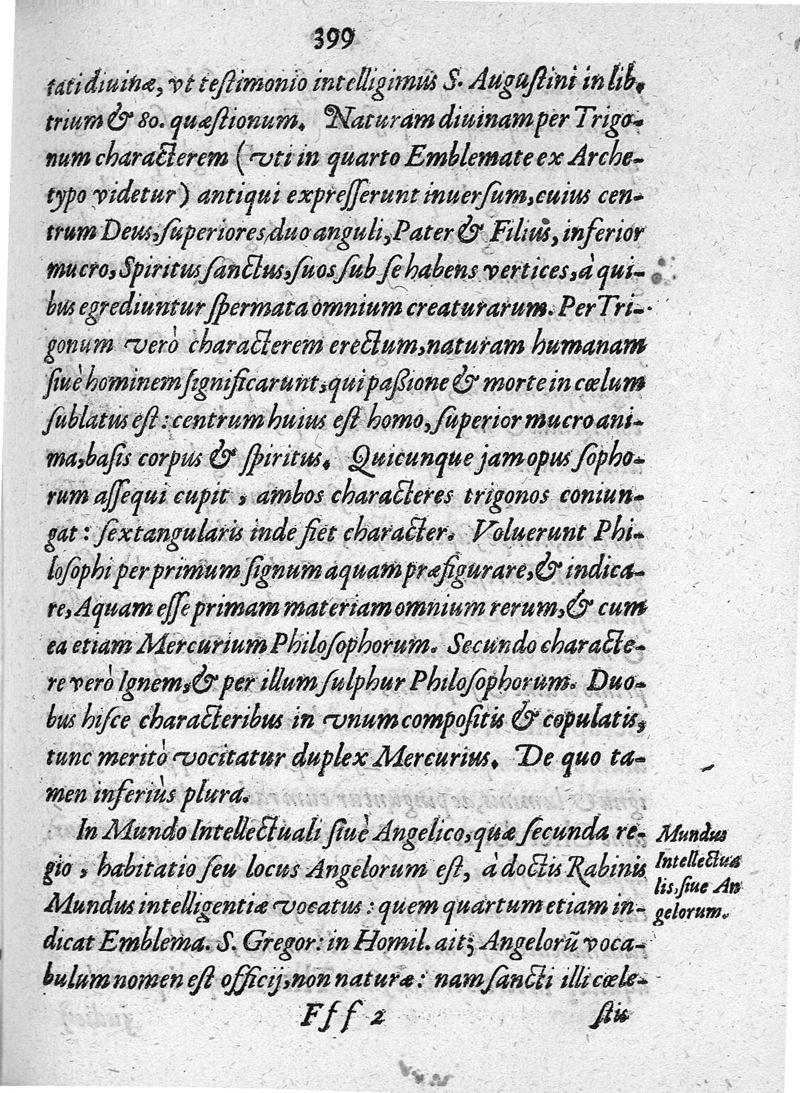 399
tati diuinæ, vt testimonio intelligimus S. Augustini in lib.
trium & 80. quæstionum. Naturam diuinam per Trigo-
num characterem ( vti in quarto Emblemate ex Arche-
typo videtur ) antiqui expresserunt inuersum, cuius cen-
trum Deus, superiores duo anguli, Pater & Filius, inferior
mucro, Spiritus sanctus, suos sub se habens vertices, à qui-
bus egrediuntur spermata omnium creaturarum. Per Tri-
gonum verò characterem erectum, naturam humanam
siuè hominem significarunt, qui passione & morte in cœlum
sublatus est: centrum huius est homo, superior mucro ani-
ma, basis corpus & spiritus. Quicunque jam opus sopho-
rum assequi cupit, ambos characteres trigonos coniun-
gat: sextangularis inde fiet character. Voluerunt Phi-
losophi per primum signum aquam præfigurare, & indica-
re, Aquam esse primam materiam omnium rerum, & cum
ea etiam Mercurium Philosophorum. Secundo characte-
re verò Ignem, & per illum sulphur Philosophorum. Duo-
bus hisce characteribus in vnum compositis & copulatis,
tunc meritò vocitatur duplex Mercurius. De quo ta-
men inferiùs plura.
In Mundo Intellectuali siuè Angelico, quæ secunda re-
gio, habitatio seu locus Angelorum est, à doctis Rabinis
Mundus intelligentiæ vocatus: quem quartum etiam in-
dicat Emblema. S. Gregor: in Homil. ait; Angelorũ voca-
bulum nomen est officij, non naturæ: nam sancti illi cœle-
Mundus
Intellectua
lis, siue An
gelorum.
Fff 2
stis